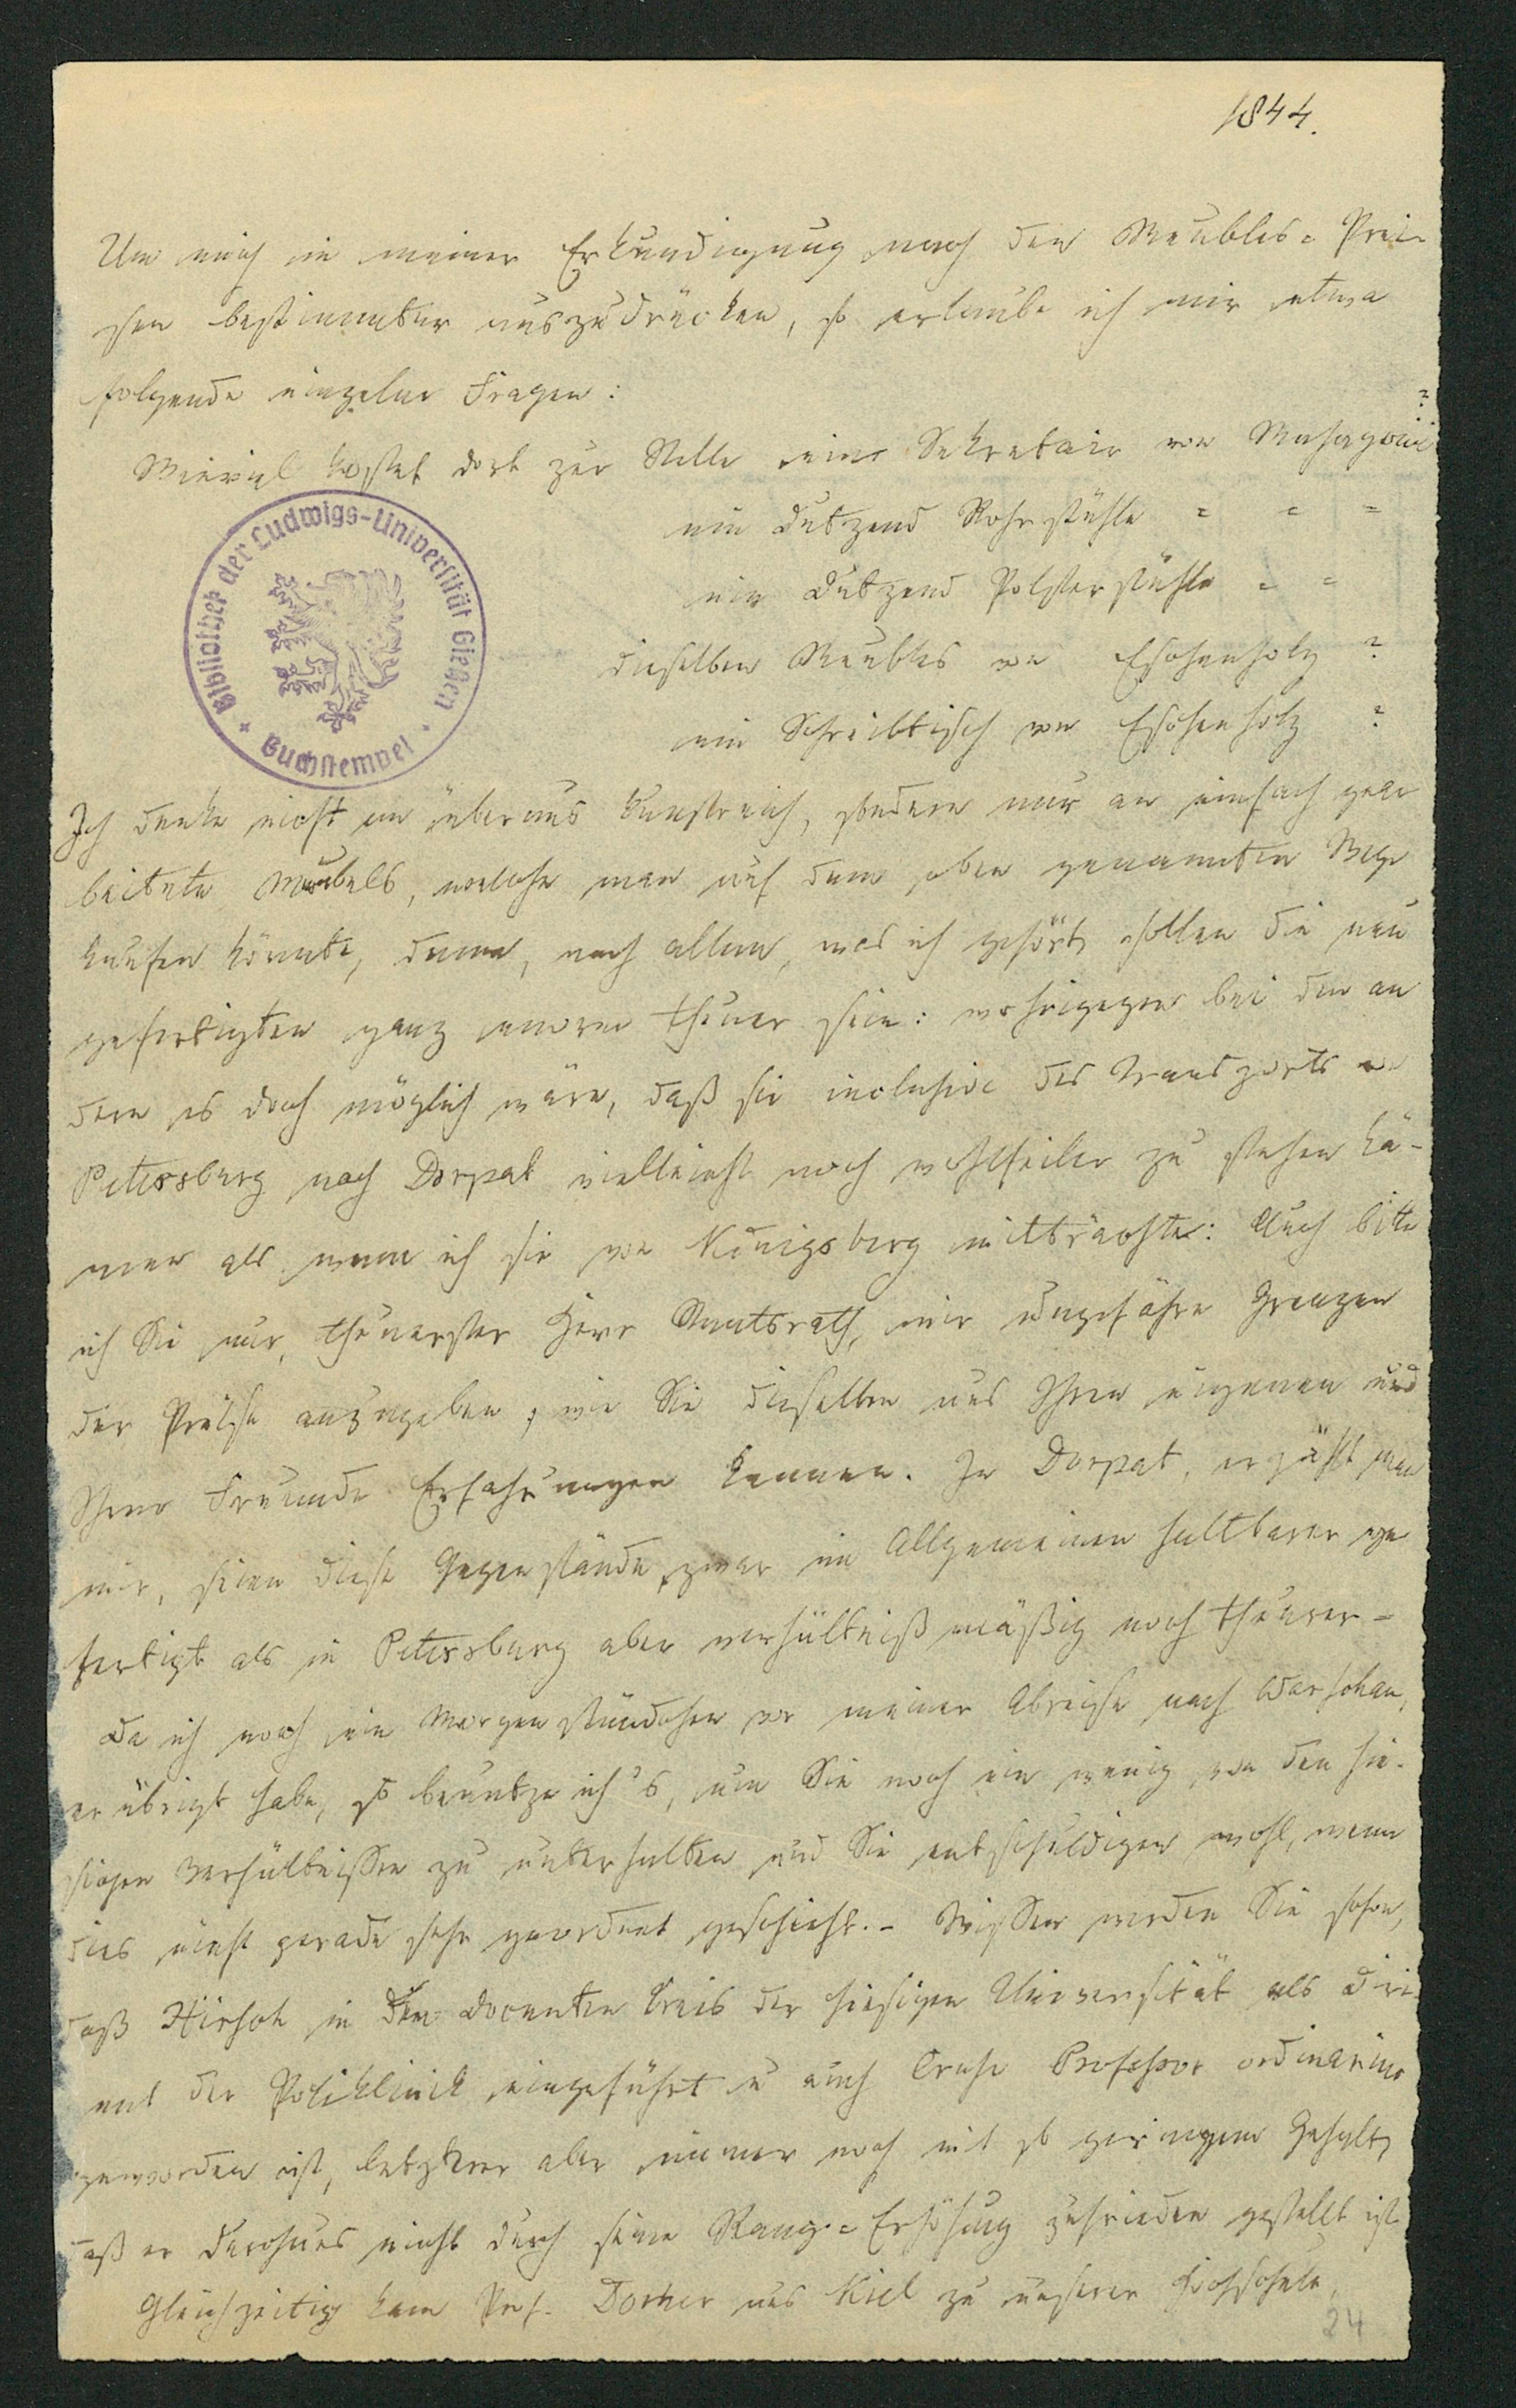 1844.
Um mich in meiner Erkundigung nach den Meubles-Prei-
sen bestimmter auszudrücken, so erlaube ich mir etwa
folgende einzelne Fragen:
Wieviel kostet dort zur Stelle ein Sekretair von Mahagoni?
ein Dutzend Rohrstühle = = =
ein Dutzend Polsterstühle = =
dieselben Meubles von Eschenholz?
ein Schreibtisch von Eschenholz?
Bibliothek der Ludwigs-Universität Gießen
Buchstempel
Ich denke nicht an überaus kunstreich, sondern nur an einfach gear
beitete Meubels, welche man auf dem oben genannten Wege
kaufen könnte, denn, nach allem, was ich gehört, sollen die neu
gefertigten ganz enorm theuer sein: wohingegen bei den an
dern es doch möglich wäre, daß sie inclusive des Transports von
Petersburg nach Dorpat vielleicht noch wohlfeiler zu stehen kä-
men als wenn ich sie von Königsberg mitbrächte: Auch bitte
ich Sie nur, theuerster Herr Staatsrath, mir ungefähre Grenzen
der Preise anzugeben, wie Sie dieselben aus Ihren eigenen und
Ihrer Freunde Erfahrungen kennen. In Dorpat, erzählt man
mir, seien diese Gegenstände zwar im Allgemeinen haltbarer ge
fertigt als in Petersburg aber verhältnißmäßig noch theurer-
Da ich noch ein Morgenstündchen vor meiner Abreise nach Warschau,
erübrigt habe, so benutze ich's, um Sie noch ein wenig von den hie-
sigen Verhältnissen zu unterhalten und Sie entschuldigen wohl, wenn
dies nicht gerade sehr geordnet geschieht.- Wissen werden Sie schon,
daß Hirsch in den Docenten Kreis der hiesigen Universität als Diri-
ent der Poliklinick eingeführt u auch Cruse Professor ordinarius
geworden ist, letzterer aber immer noch mit so geringem Gehalt,
daß er durchaus nicht durch seine Rang-Erhöhung zufrieden gestellt ist.
Gleichzeitig kam Prof. Dorner aus Kiel zu unserer Hochschule,
24